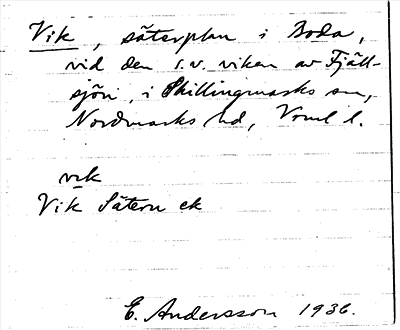 Vik, säterplan i Boda,
vid den s.v. viken av Fjäll-
sjön, i Skillingmarks sn,
Nordmarks hd, Vrml l.
vik
Vik Sätern ek
E. Andersson 1936.